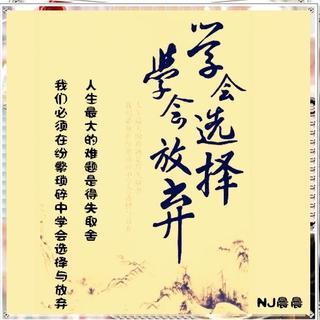 学会选择
學会放弃
人生最大的难题是得失取舍
我们必须在纷繁琐碎中学会选择与放弃
NJ晨晨